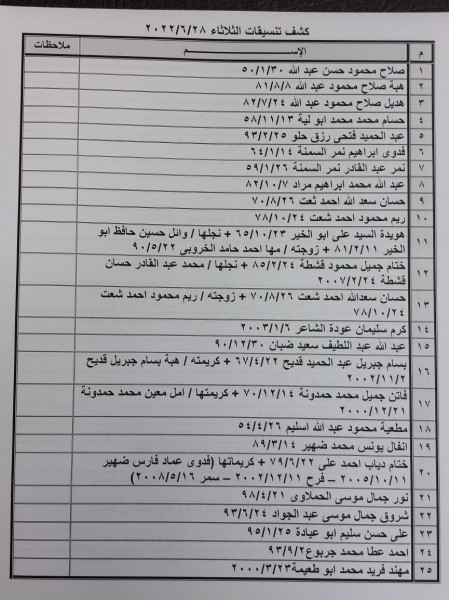 كشف تنسيقات الثلاثاء ٢٠٢٢/٦/٢٨
م الإســـــم ملاحظات
١ صلاح محمود حسن عبد الله ٥٠/١/٣٠
٢ هبة صلاح محمود عبد الله ٨١/٨/٨
٣ هديل صلاح محمود عبد الله ٨٢/٧/٢٤
٤ حسام محمد محمد ابو لية ٥٨/١١/١٣
٥ عبد الحميد فتحى رزق حلو ٩٣/٢/٢٥
٦ فدوى ابراهيم نمر السمنة ٦٤/١/١٤
٧ نمر عبد القادر نمر السمنة ٥٩/١/٢٦
٨ عبد الله محمد ابراهيم مراد ٨٢/١٠/٧
٩ حسان سعد الله احمد شعت ٧٠/٨/٢٦
١٠ ريم محمود احمد شعت ٧٨/١٠/٢٤
١١ هويدة السيد على ابو الخير ٦٥/١٠/٢٣ + نجلها / وائل حسين حافظ ابو
الخير ٨١/٢/١١ + زوجته / مها احمد حامد الخروبى ٩٠/٥/٢٢
١٢ ختام جميل محمود قشطة ٨٥/٢/٢٤ + نجلها / محمد عبد القادر حسان
قشطة ٢٠٠٧/٢/٢٤
١٣ حسان سعدالله احمد شعت ٧٠/٨/٢٦ + زوجته / ريم محمود احمد شعت
٧٨/١٠/٢٤
١٤ كرم سليمان عودة الشاعر ٢٠٠٣/١/٦
١٥ عبد الله عبد اللطيف سعيد ضبان ٩٠/١٢/٣٠
١٦ بسام جبريل عبد الحميد قديح ٦٧/٤/٢٢ + كريمته / هبة بسام جبريل قديح
٢٠٠٢/١١/٢
١٧ فاتن جميل محمد حمدونة ٧٠/١٢/١٤ + كريمتها / امل معين محمد حمدونة
٢٠٠٠/١٢/٢١
١٨ مطعية محمود عبد الله اسليم ٥٤/٤/٢٦
١٩ انفال يونس محمد ضهير ٨٩/٣/١٤
٢٠ ختام دياب احمد على ٧٩/٦/٢٢ + كريماتها (فدوى عماد فارس ضهير
٢٠٠٥/١٠/١١ – فرح ٢٠٠٢/١٢/١١ – سمر ٢٠٠٨/٥/١٦)
٢١ نور جمال موسى الحملاوى ٩٨/٤/٢١
٢٢ شروق جمال موسى عبد الجواد ٩٣/٦/٢٤
٢٣ على حسن سليم ابو عيادة ٩٥/١/٢٥
٢٤ احمد عطا محمد جربوع ٩٣/٩/٢
٢٥ مهند فريد محمد ابو طعيمة ٢٠٠٠/٣/٢٣